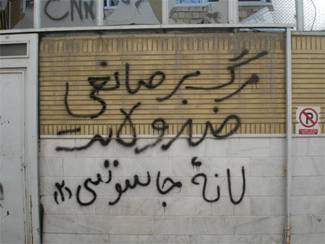 CNN
مرگ بر صانعی
ضد ولایت
لانهٔ جاسوسی (۲)